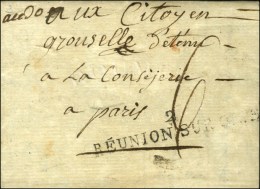 aux Citoyen
grouselle détenu
a La Consijerie
a paris
2
RÉUNION SUR